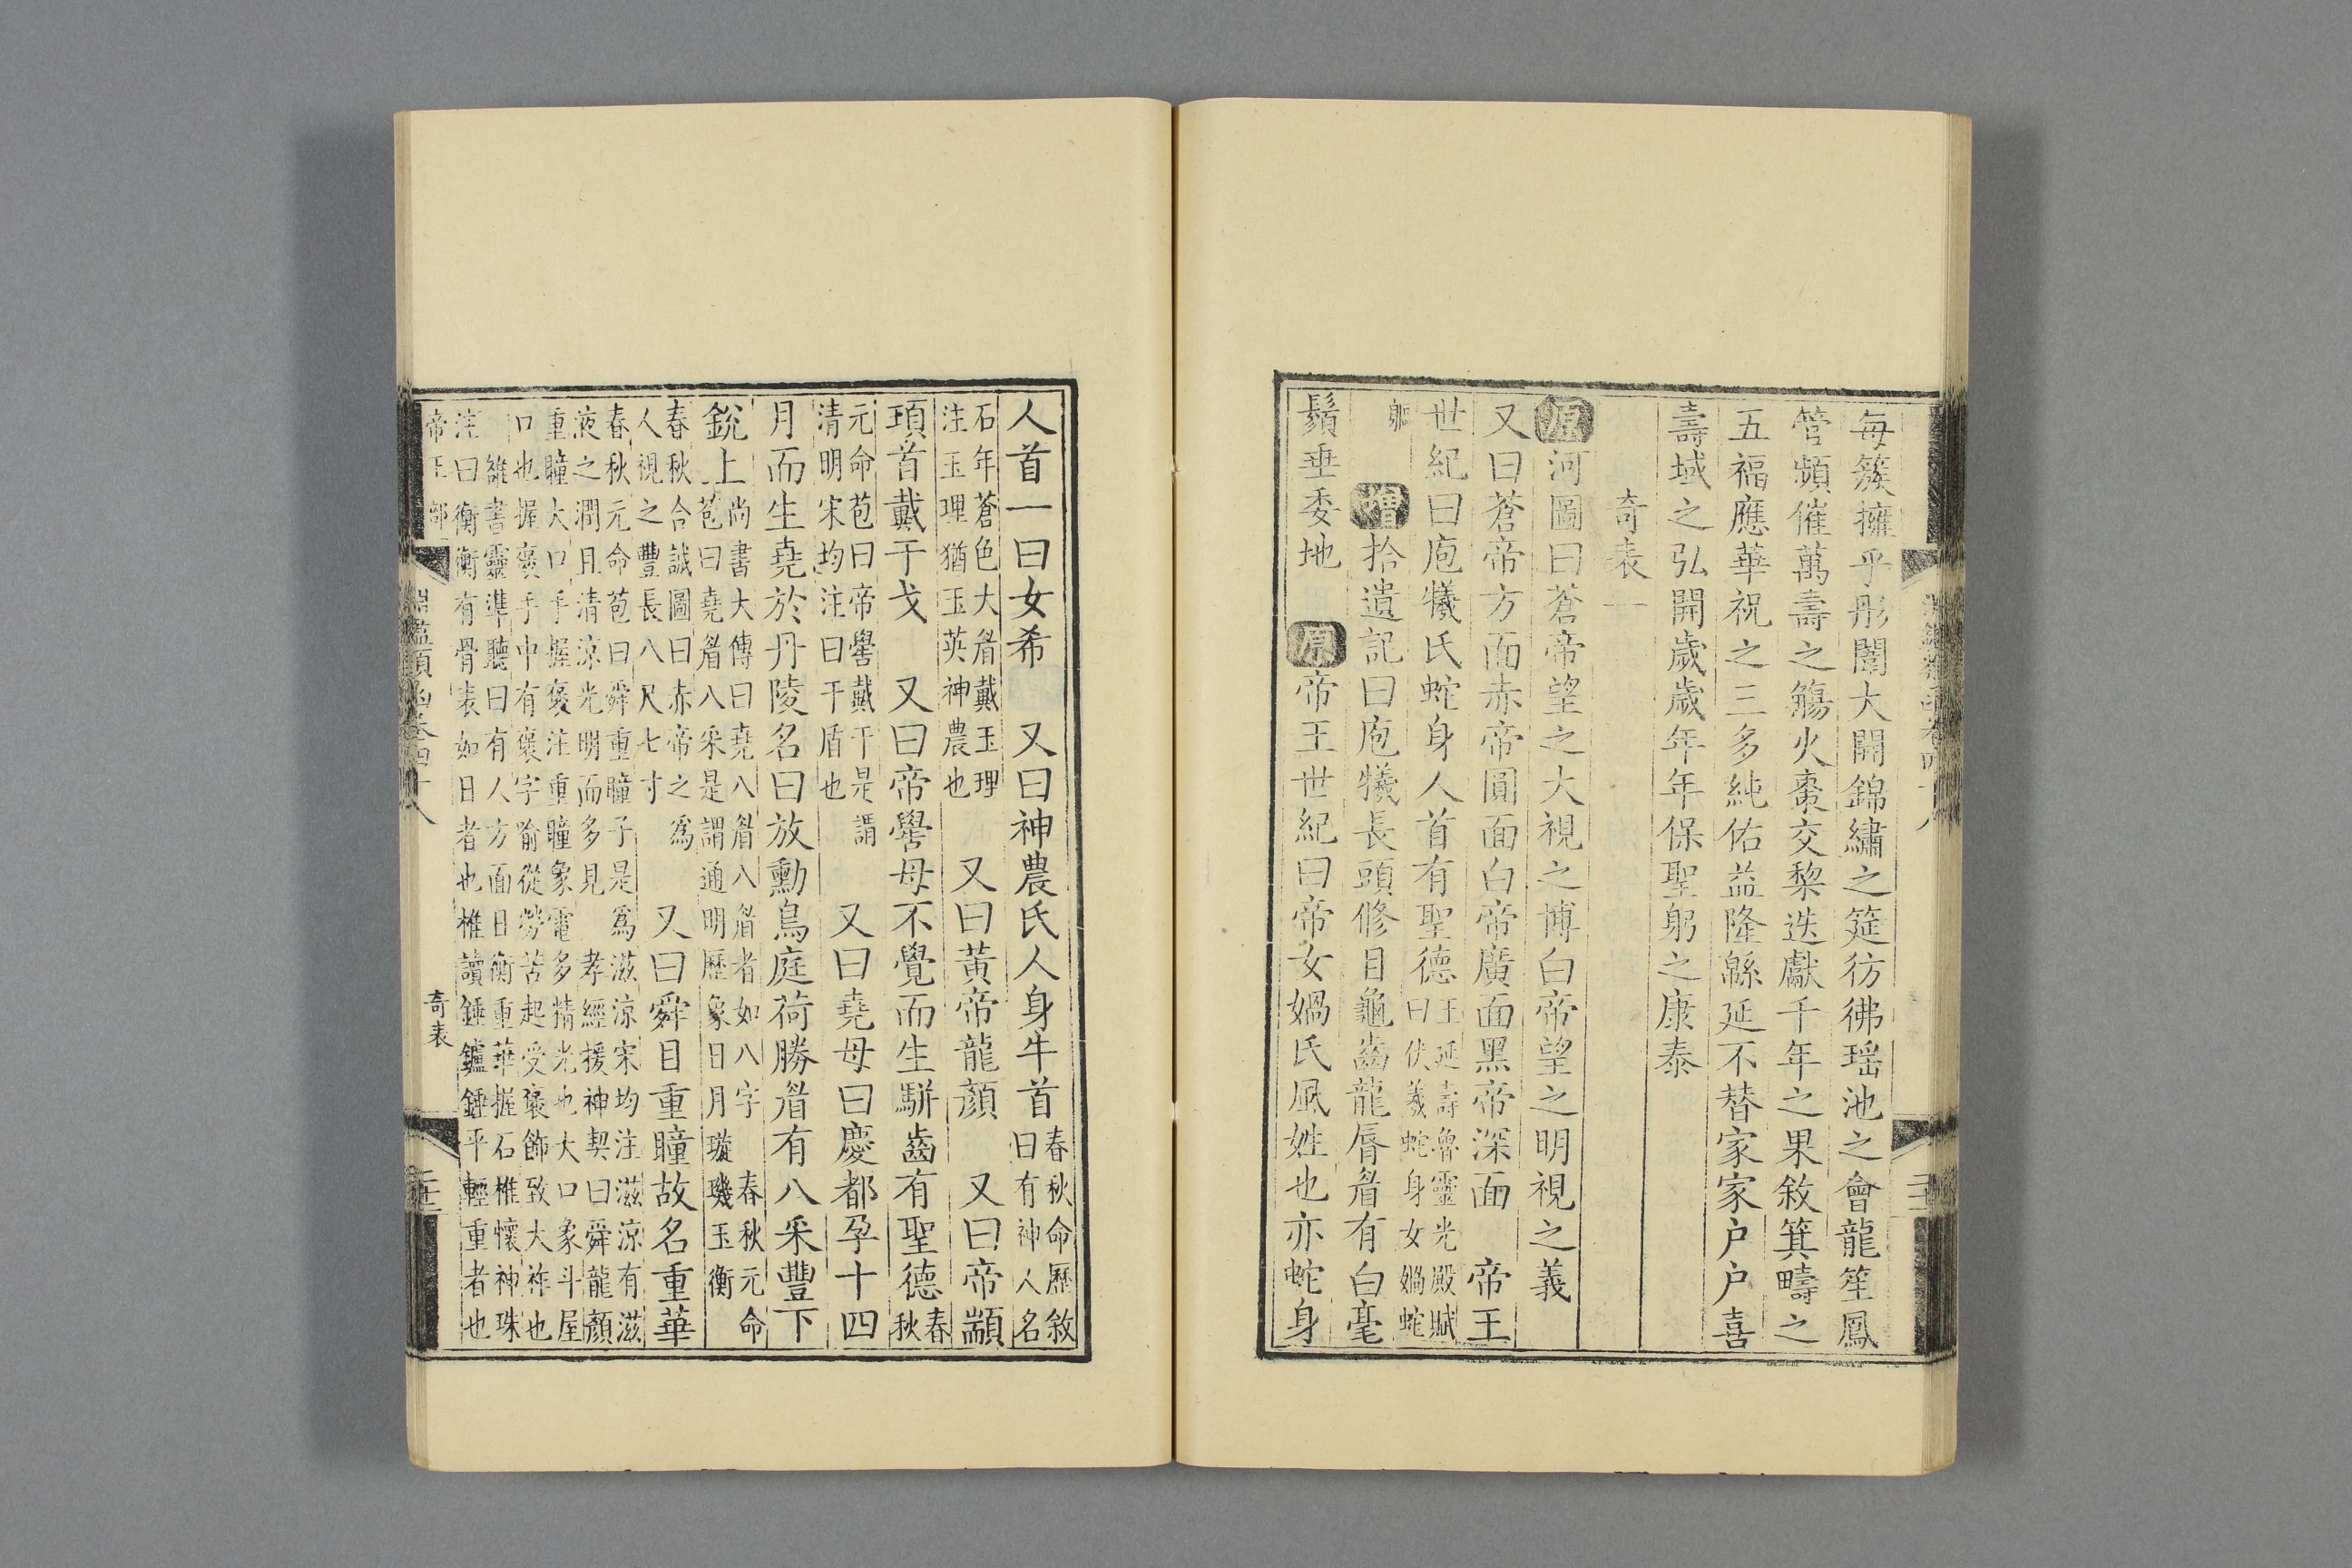 每簇擁乎彤闈大開錦繡之筵彷彿瑤池之會龍笙鳳
管頻催萬壽之觴火棗交棃迭獻千年之果敘箕疇之
五福應華祝之三多純佑益隆緜延不替家家戶戶喜
壽域之弘開歲歲年年保聖躬之康泰
奇表一
原河圖曰蒼帝望之大視之博白帝望之明視之義
又曰蒼帝方面赤帝圓面白帝廣面黑帝深面 帝王
世紀曰庖犧氏蛇身人首有聖德王延壽魯靈光殿賦
曰伏羲蛇身女媧蛇
軀 增拾遺記曰庖犧長頭修目龜齒龍脣眉有白毫
鬚垂委地 原帝王世紀曰帝女媧氏風姓也亦蛇身
人首一曰女希 又曰神農氏人身牛首春秋命歷敘
曰有神人名
石年蒼色大眉戴玉理
注玉理猶玉英神農也 又曰黃帝龍顏 又曰帝顓
頊首戴干戈 又曰帝嚳母不覺而生騈齒有聖德春
秋
元命苞曰帝嚳戴干是謂
清明宋均注曰干盾也 又曰堯母曰慶都孕十四
月而生堯於丹陵名曰放勳鳥庭荷勝眉有八采豐下
銳上尚書大傳曰堯八眉八眉者如八字 春秋元命
苞曰堯眉八采是謂通明歷象日月璇璣玉衡
春秋合誠圖曰赤帝之為
人視之豐長八尺七寸 又曰舜目重瞳故名重華
春秋元命苞曰舜重瞳子是爲滋涼宋均注滋涼有滋
液之潤且清涼光明而多見 孝經援神契曰舜龍顏
重瞳大口手握褒注重瞳象電多精光也大口象斗屋
口也握褒手中有褒字喻從勞苦起受褒飾致大祚也
雒書靈準聽曰有人方面日衡重華握石椎懷神珠
注曰衡衡有骨表如日者也椎讀錘鑪錘平輕重者也
奇表